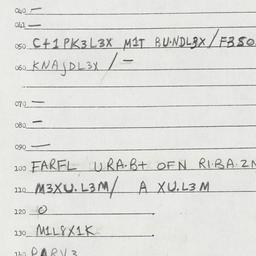 040 —
041 —
050 C+1 PK3L3X M1T BU.NDL3X/F350
060 KNAJDL3X / —
070 —
080 —
090 —
100 FARFL URA.B+ OFN RI.BA.2N
110 M3XU.L3M/ A XU.L3M
120 O
130 M1L8X1K